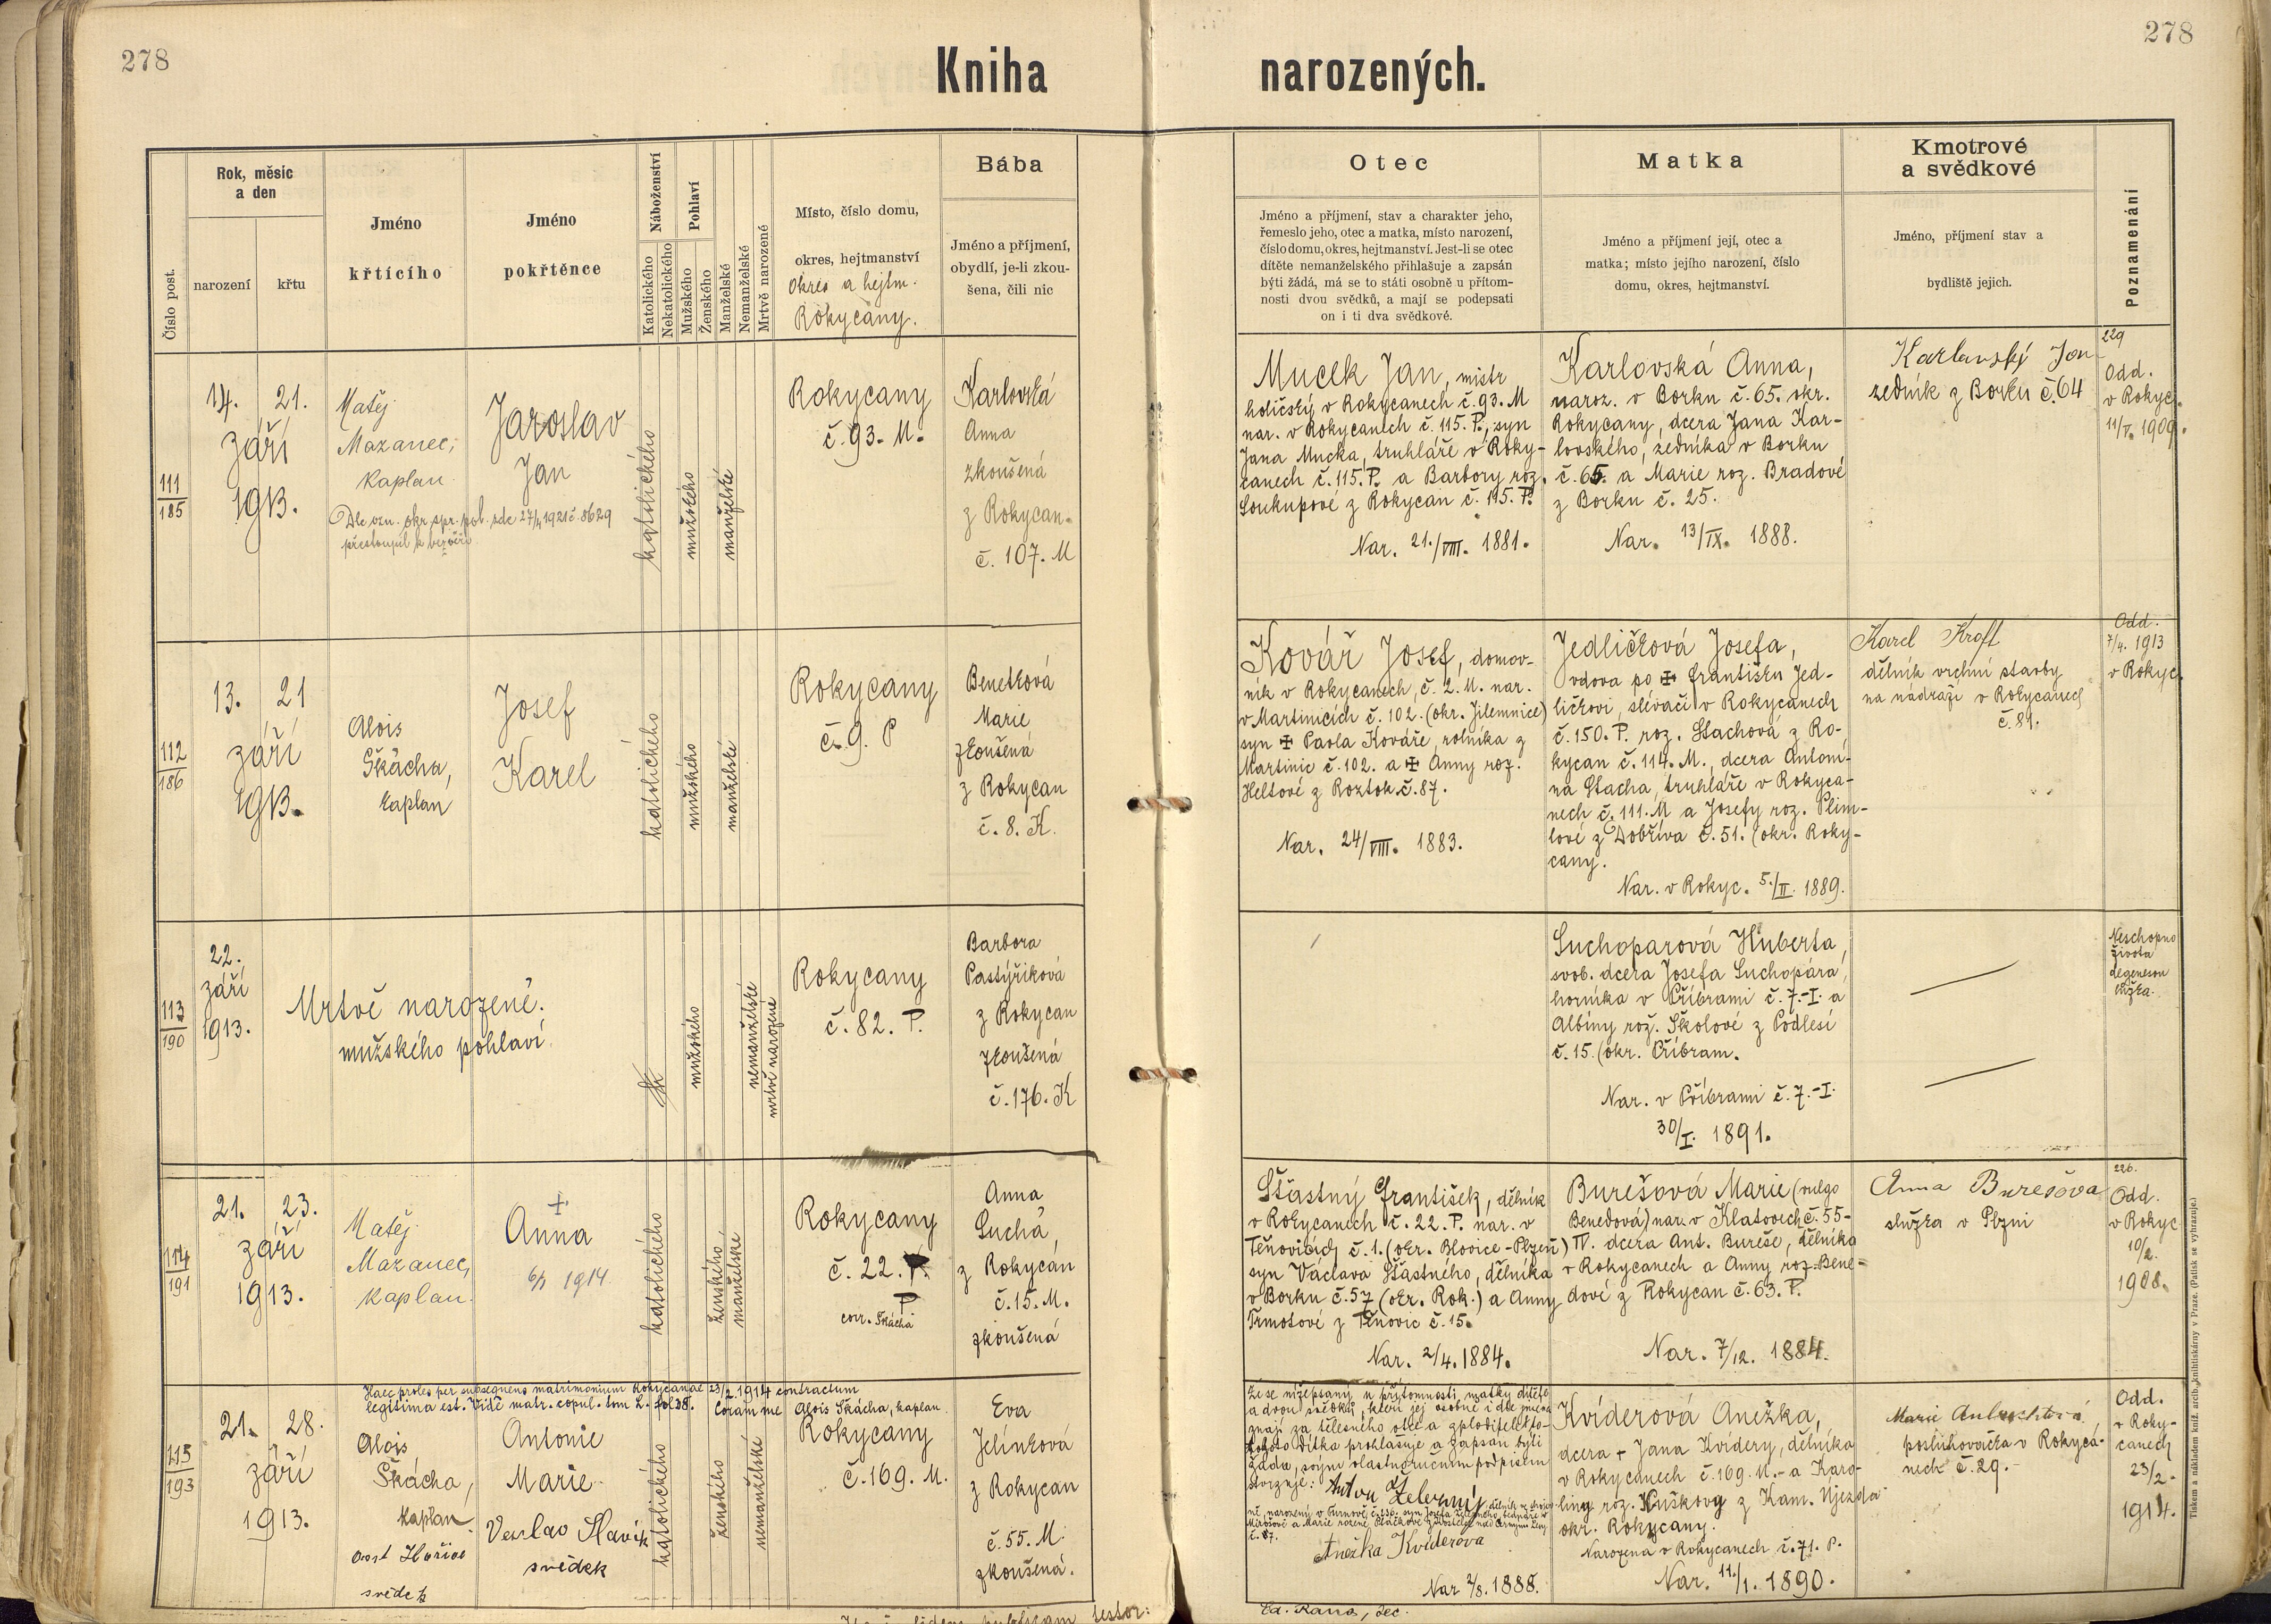 278
278
Kniha
narozených.
Číslo post.
Rok, měsíc
a den
narození
křtu
Jméno
křtícího
Jméno
pokřtěnce
Náboženství
Katolického
Nekatolického
Pohlaví
Mužského
Ženského
Manželské
Nemanželské
Mrtvě narozené
Místo, číslo domu,
okres, hejtmanství
Okres a hejtm.
Rokycany.
Bába
Jméno a příjmení,
obydlí, je-li zkou-
šena, čili nic
Otec
Jméno a příjmení, stav a charakter jeho,
řemeslo jeho, otec a matka, místo narození,
číslo domu, okres, hejtmanství. Jest-li se otec
dítěte nemanželského přihlašuje a zapsán
býti žádá, má se to státi osobně u přítom-
nosti dvou svědků, a mají se podepsati
on i ti dva svědkové.
Matka
Jméno a příjmení její, otec a
matka; místo jejího narození, číslo
domu, okres, hejtmanství.
Kmotrové
a svědkové
Jméno, příjmení stav a
bydliště jejich.
Poznamenání
111
185
14. 21.
září
1913.
Matěj
Mazanec,
kaplan.
Jaroslav
Jan
Dle ozn. okr. spr. pol. zde 27/4 1921 č. 8629
přestoupil k bezvěří
katolického
mužského
manželské
Rokycany
č. 93. M.
Karlovská
Anna
zkoušená
z Rokycan.
č. 107. M
Mucek Jan, mistr
holičský v Rokycanech č. 93. M
nar. v Rokycanech č. 115. P., syn
Jana Mucka, truhláře v Roky-
canech č. 115. P. a Barbory roz.
Soukupové z Rokycan č. 115. P.
Nar. 21./VIII. 1881.
Karlovská Anna,
naroz. v Borku č. 65. okr.
Rokycany, dcera Jana Kar-
lovského, zedníka v Borku
č. 65. a Marie roz. Bradové
z Borku č. 25.
Nar. 13/IX. 1888.
Karlovský Jan
zedník z Borku č. 64
229
Odd.
v Rokyc.
11/V. 1909.
112
186
13. 21
září
1913.
Alois
Škácha,
kaplan
Josef
Karel
katolického
mužského
manželské
Rokycany
č. 9. P
Benetková
Marie
zkoušená
z Rokycan
č. 8. K.
Kovář Josef, domov-
ník v Rokycanech, č. 2. M. nar.
v Martinicích č. 102. (okr. Jilemnice)
syn ✠ Pavla Kováře, rolníka z
Martinic č. 102. a ✠ Anny roz.
Heltové z Roztok č. 87.
Nar. 24/VIII. 1883.
Jedličková Josefa,
vdova po ✠ Františku Jed-
ličkovi, slévači v Rokycanech
č. 150. P. roz. Stachová z Ro-
kycan č. 114. M., dcera Antoní-
na Stacha, truhláře v Rokyca-
nech č. 111. M a Josefy roz. Plim-
lové z Dobříva č. 51. (okr. Roky-
cany.
Nar. v Rokyc. 5./II. 1889.
Karel Kroft
dělník vrchní stavby
na nádraží v Rokycanech
č. 81.
Odd.
7/4. 1913
v Rokyc.
113
190
22.
září
1913.
Mrtvě narozené.
mužského pohlaví.
mužského
nemanželské
mrtvě narozené
Rokycany
č. 82. P.
Barbora
Pastýříková
z Rokycan
zkoušená
č. 176. K
Suchoparová Huberta,
svob. dcera Josefa Suchopára,
horníka v Příbrami č. 7.-I. a
Albíny roz. Školové z Podlesí
č. 15. (okr. Příbram.
Nar. v Příbrami č. 7.-I.
30/I. 1891.
Neschopno
života
114
191
21. 23.
září
1913.
Matěj
Mazanec,
kaplan.
+
Anna
6/1 1914
katolického
ženského,
manželské
Rokycany
č. 22.
P
corr. Škácha
Anna
Suchá,
z Rokycan
č. 15. M.
zkoušená
Šťastný František, dělník
v Rokycanech č. 22. P. nar. v
Těňovicích č. 1. (okr. Blovice-Plzeň)
syn Václava Šťastného, dělníka
v Borku č. 57 (okr. Rok.) a Anny
Trmotové z Těňovic č. 15.
Nar. 2/4. 1884.
Burešová Marie (vulgo
Benedová) nar. v Klatovech č. 55-
IV. dcera Ant. Bureše, dělníka
v Rokycanech a Anny roz. Bene-
dové z Rokycan č. 63. P.
Nar. 7/12. 1884.
Anna Burešova
služka v Plzni
226.
Odd.
v Rokyc
10/2.
1908.
Haec proles per subsequens matrimonium Rokycanae 23/2 1914 contractum
legitima est. Vide matr. copul. tom 2. fol 38. Coram me Alois Škácha, kaplan
115
193
21. 28.
září
1913.
Alois
Škácha,
kaplan
svědek
Antonie
Marie
Václav Slavík
svědek
katolického
ženského
nemanželské
Rokycany
č. 169. M.
Eva
Jelínková
z Rokycan
č. 55. M.
zkoušená.
že se nížepsaný u přítomnosti matky dítěte
a dvou svědků, kteří jej osobně i dle jména
znají za tělesného otce a zploditele to-
hoto dítka prohlašuje a zapsán býti
žádá, svým vlastnoručním podpisem
stvrzuje: Anton Zelenný
Anežka Kviderova
Nar 2/8. 1888.
Kviderová Anežka,
dcera + Jana Kvidery, dělníka
v Rokycanech č. 169. M. - a Karo-
liny roz. Kuškovy z Kam. Újezda
okr. Rokycany.
Narozena v Rokycanech č. 71. P.
Nar. 11./1. 1890.
Marie
posluhovačka v Rokyca-
nech č. 29.-
Odd.
v Roky-
canech
23/2.
1914.
Tiskem a nákladem kníž. arcib. knihtiskárny v Praze. (Patisk se vyhrazuje.)